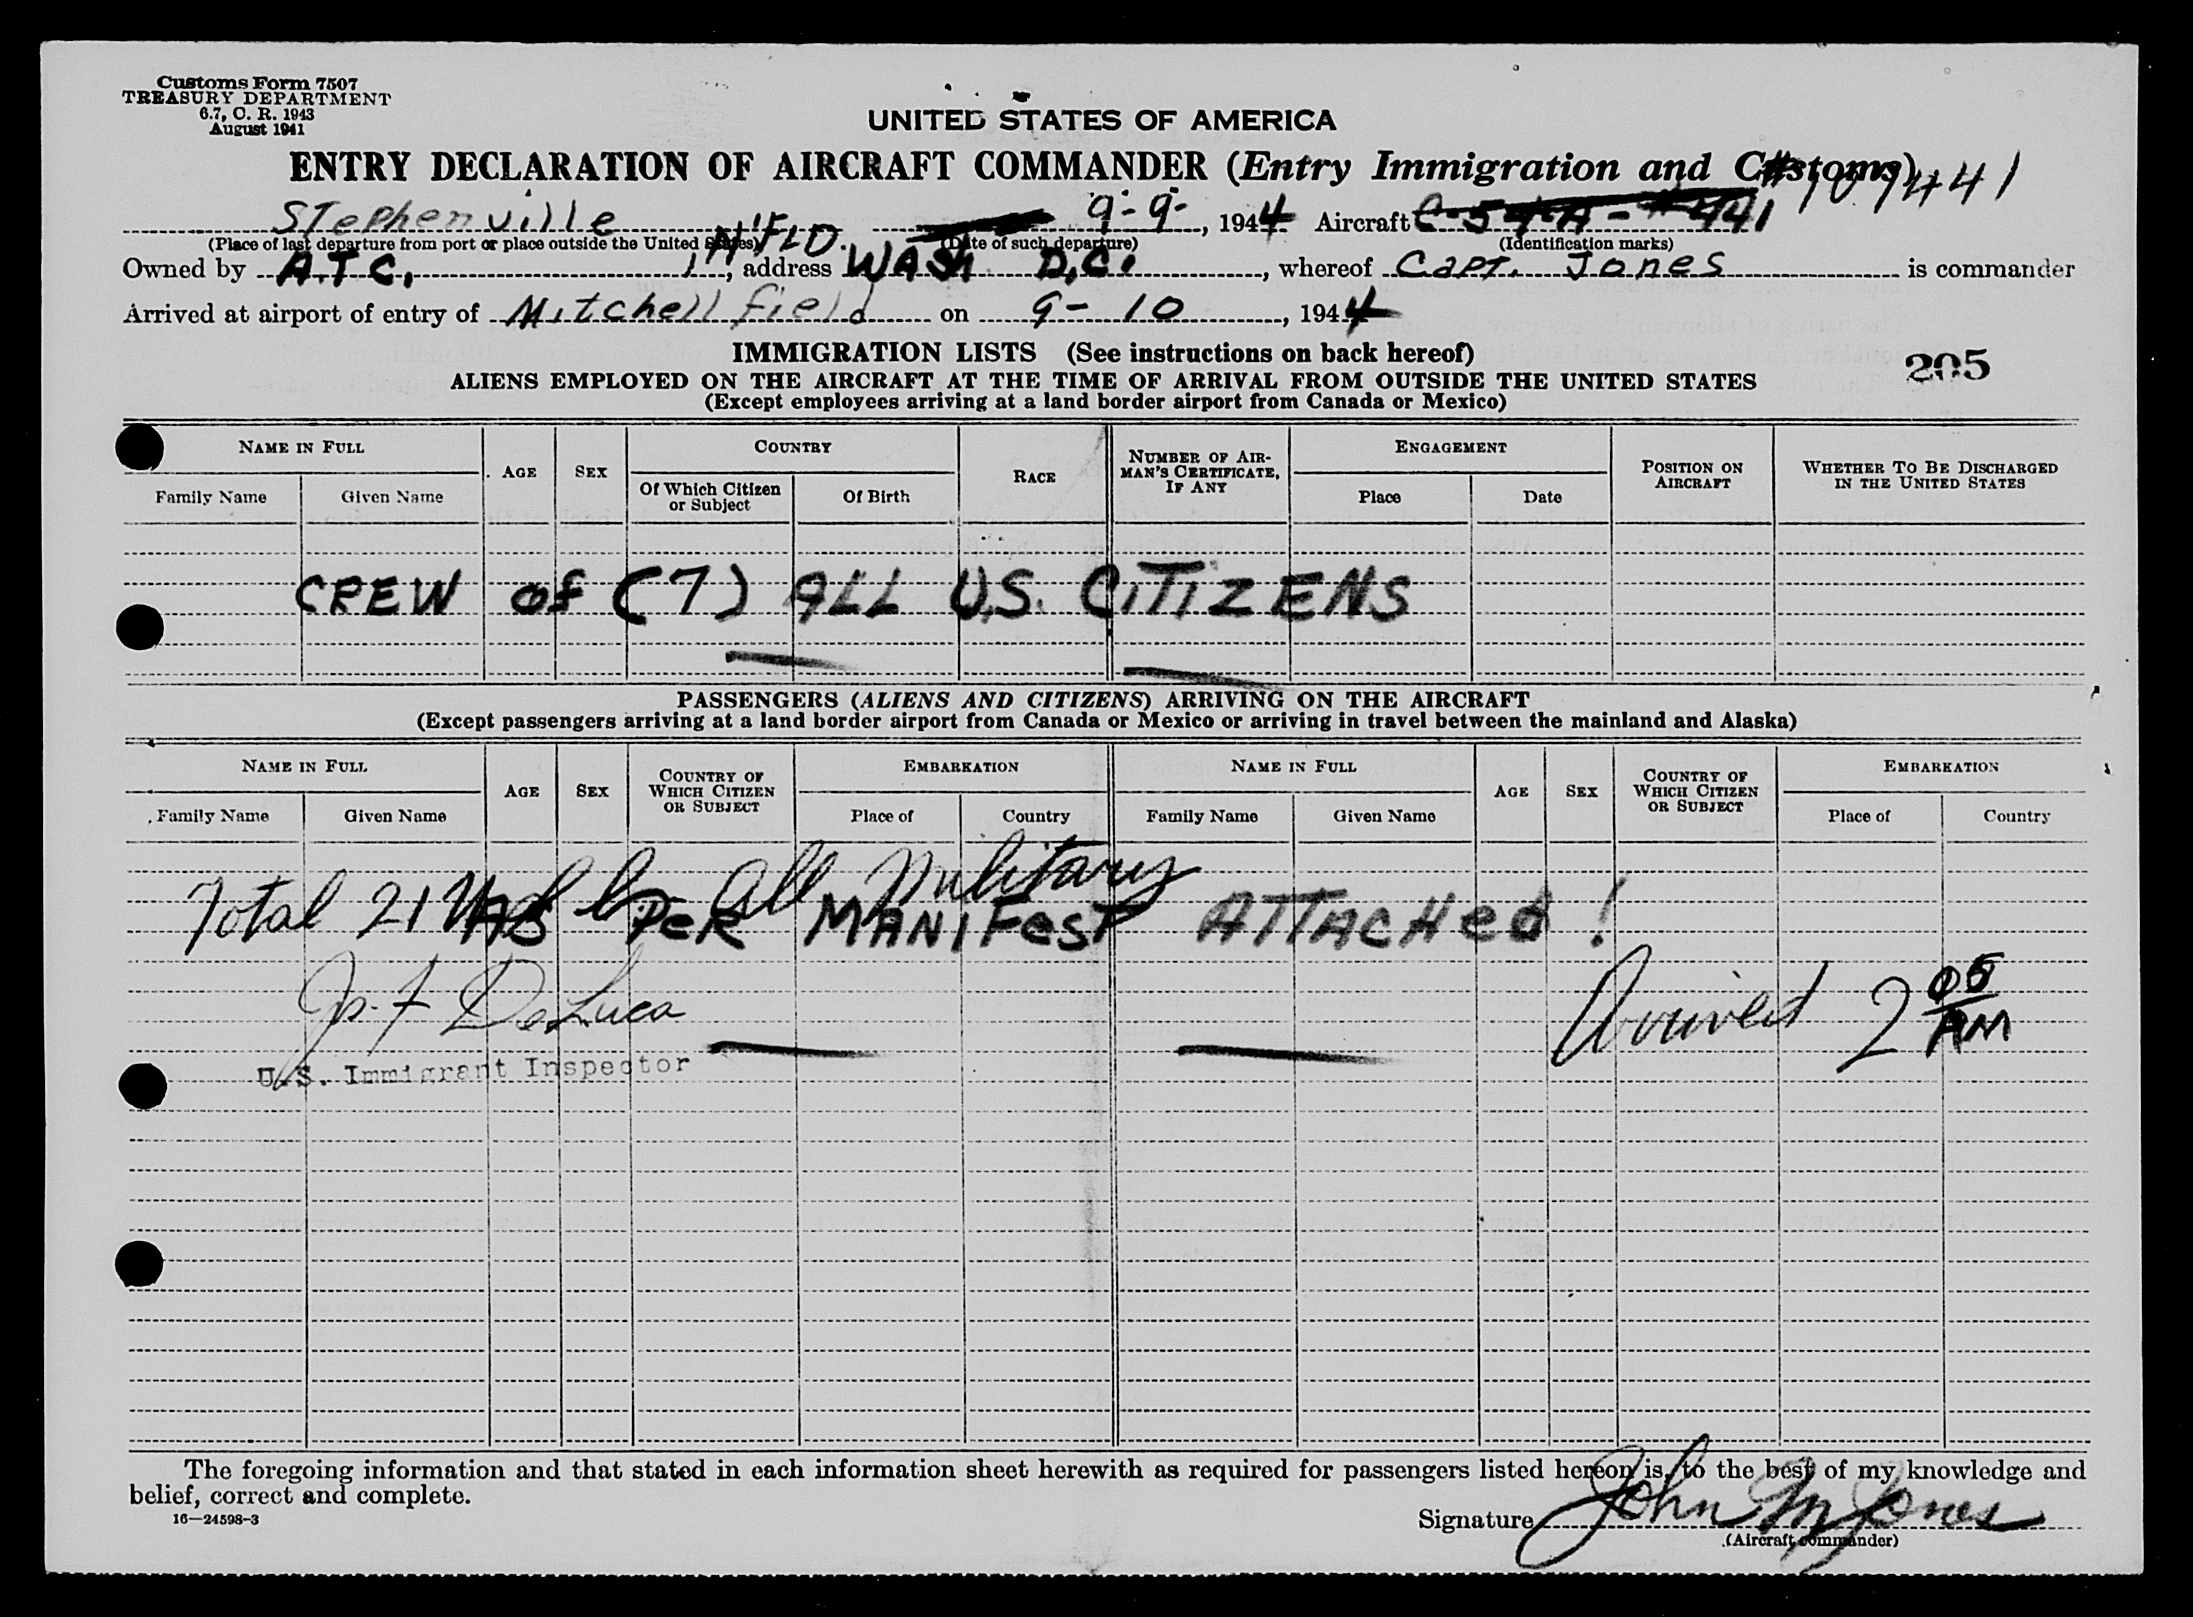 Customs Form 7507
TREASURY DEPARTMENT
6.7, C. R. 1943
August 1941
UNITED STATES OF AMERICA
ENTRY DECLARATION OF AIRCRAFT COMMANDER (Entry Immigration and Customs)
#107441
Stephenville, N'FLD. 9-9-, 1944 Aircraft C-54-A-#441
(Place of last departure from port or place outside the United States) (Date of such departure) (Identification marks)
Owned by A.T.C., address WASH D.C., whereof Capt. Jones is commander
Arrived at airport of entry of Mitchell field on 9-10, 1944
IMMIGRATION LISTS (See instructions on back hereof)
205
ALIENS EMPLOYED ON THE AIRCRAFT AT THE TIME OF ARRIVAL FROM OUTSIDE THE UNITED STATES
(Except employees arriving at a land border airport from Canada or Mexico)
NAME IN FULL AGE SEX COUNTRY RACE NUMBER OF AIRMAN'S CERTIFICATE, IF ANY ENGAGEMENT POSITION ON AIRCRAFT WHETHER TO BE DISCHARGED IN THE UNITED STATES
Family Name Given Name Of Which Citizen or Subject Of Birth Place Date
CREW of (7) ALL U.S. CITIZENS
PASSENGERS (ALIENS AND CITIZENS) ARRIVING ON THE AIRCRAFT
(Except passengers arriving at a land border airport from Canada or Mexico or arriving in travel between the mainland and Alaska)
NAME IN FULL AGE SEX COUNTRY OF WHICH CITIZEN OR SUBJECT EMBARKATION NAME IN FULL AGE SEX COUNTRY OF WHICH CITIZEN OR SUBJECT EMBARKATION
Family Name Given Name Place of Country Family Name Given Name Place of Country
Total 21 All Military
AS PER MANIFEST ATTACHED!
DeLuca
Arrived 2 05 AM
U.S. Immigrant Inspector
The foregoing information and that stated in each information sheet herewith as required for passengers listed hereon is, to the best of my knowledge and
belief, correct and complete.
16—24598-3
Signature John M Jones
(Aircraft commander)